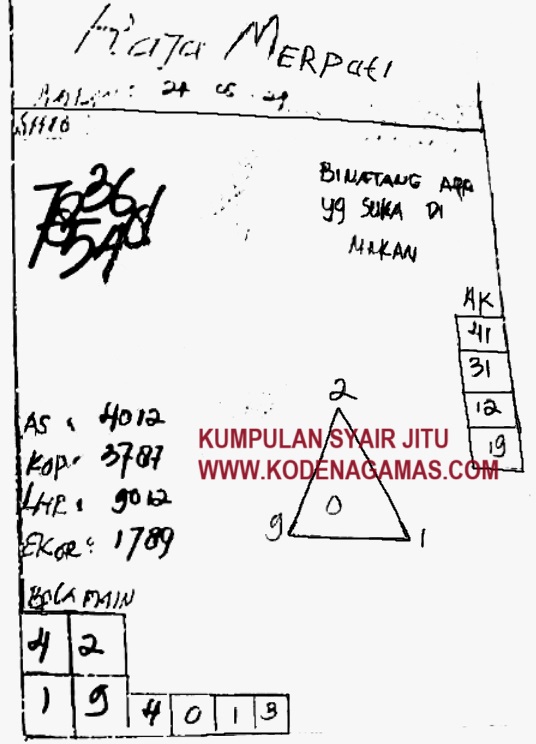 Raja MERPati
SHIO
BINATANG APA
yg SUKA DI
MAKAN
AK
41
31
12
19
2
0
9 1
AS : 4012
KOP : 3787
LHR : 9012
EKOR : 1789
KUMPULAN SYAIR JITU
WWW.KODENAGAMAS.COM
BOLA MAIN
4 2
1 9
4 0 1 3